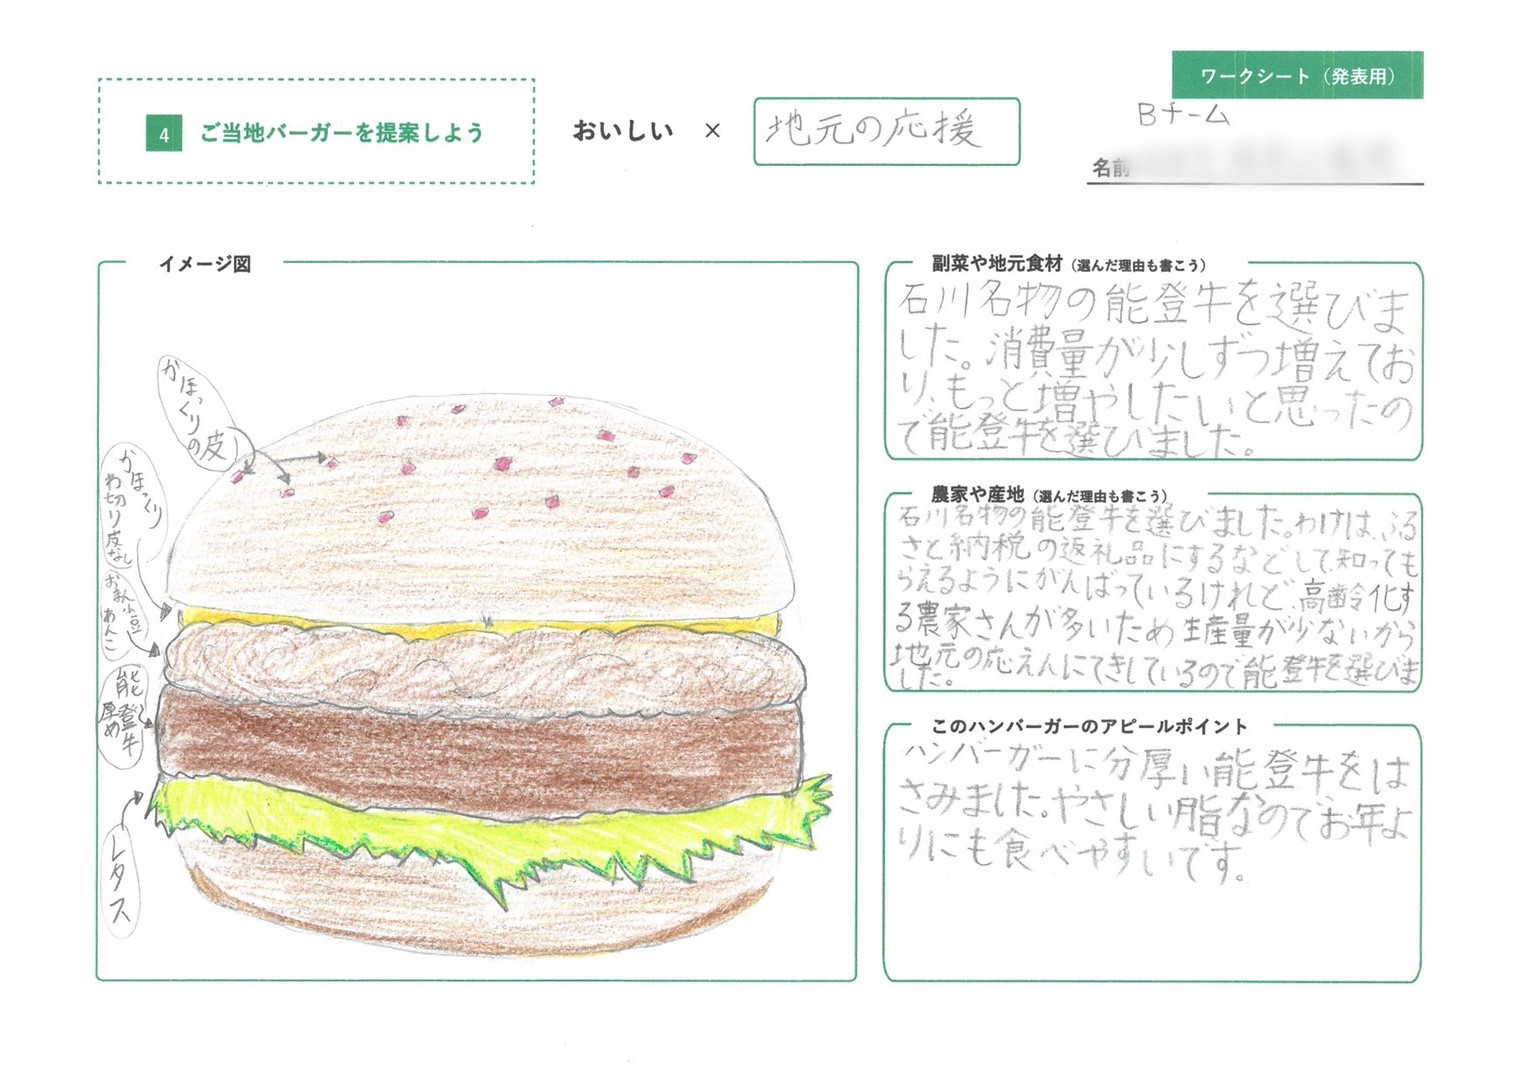 ワークシート（発表用）
4 ご当地バーガーを提案しよう
おいしい × 地元の応援
Bチーム
名前
イメージ図
かほっくりの皮
かほっくり
わ切り皮なし
小豆
あんこ
能登牛
厚め
レタス
副菜や地元食材（選んだ理由も書こう）
石川名物の能登牛を選びま
した。消費量が少しずつ増えてお
り、もっと増やしたいと思ったの
で能登牛を選びました。
農家や産地（選んだ理由も書こう）
石川名物の能登牛を選びました。わけは、ふる
さと納税の返礼品にするなどして知っても
らえるようにがんばっているけれど、高齢化す
る農家さんが多いため生産量が少ないから
地元の応えんにてきしているので能登牛を選びま
した。
このハンバーガーのアピールポイント
ハンバーガーに分厚い能登牛をは
さみました。やさしい脂なのでお年よ
りにも食べやすいです。